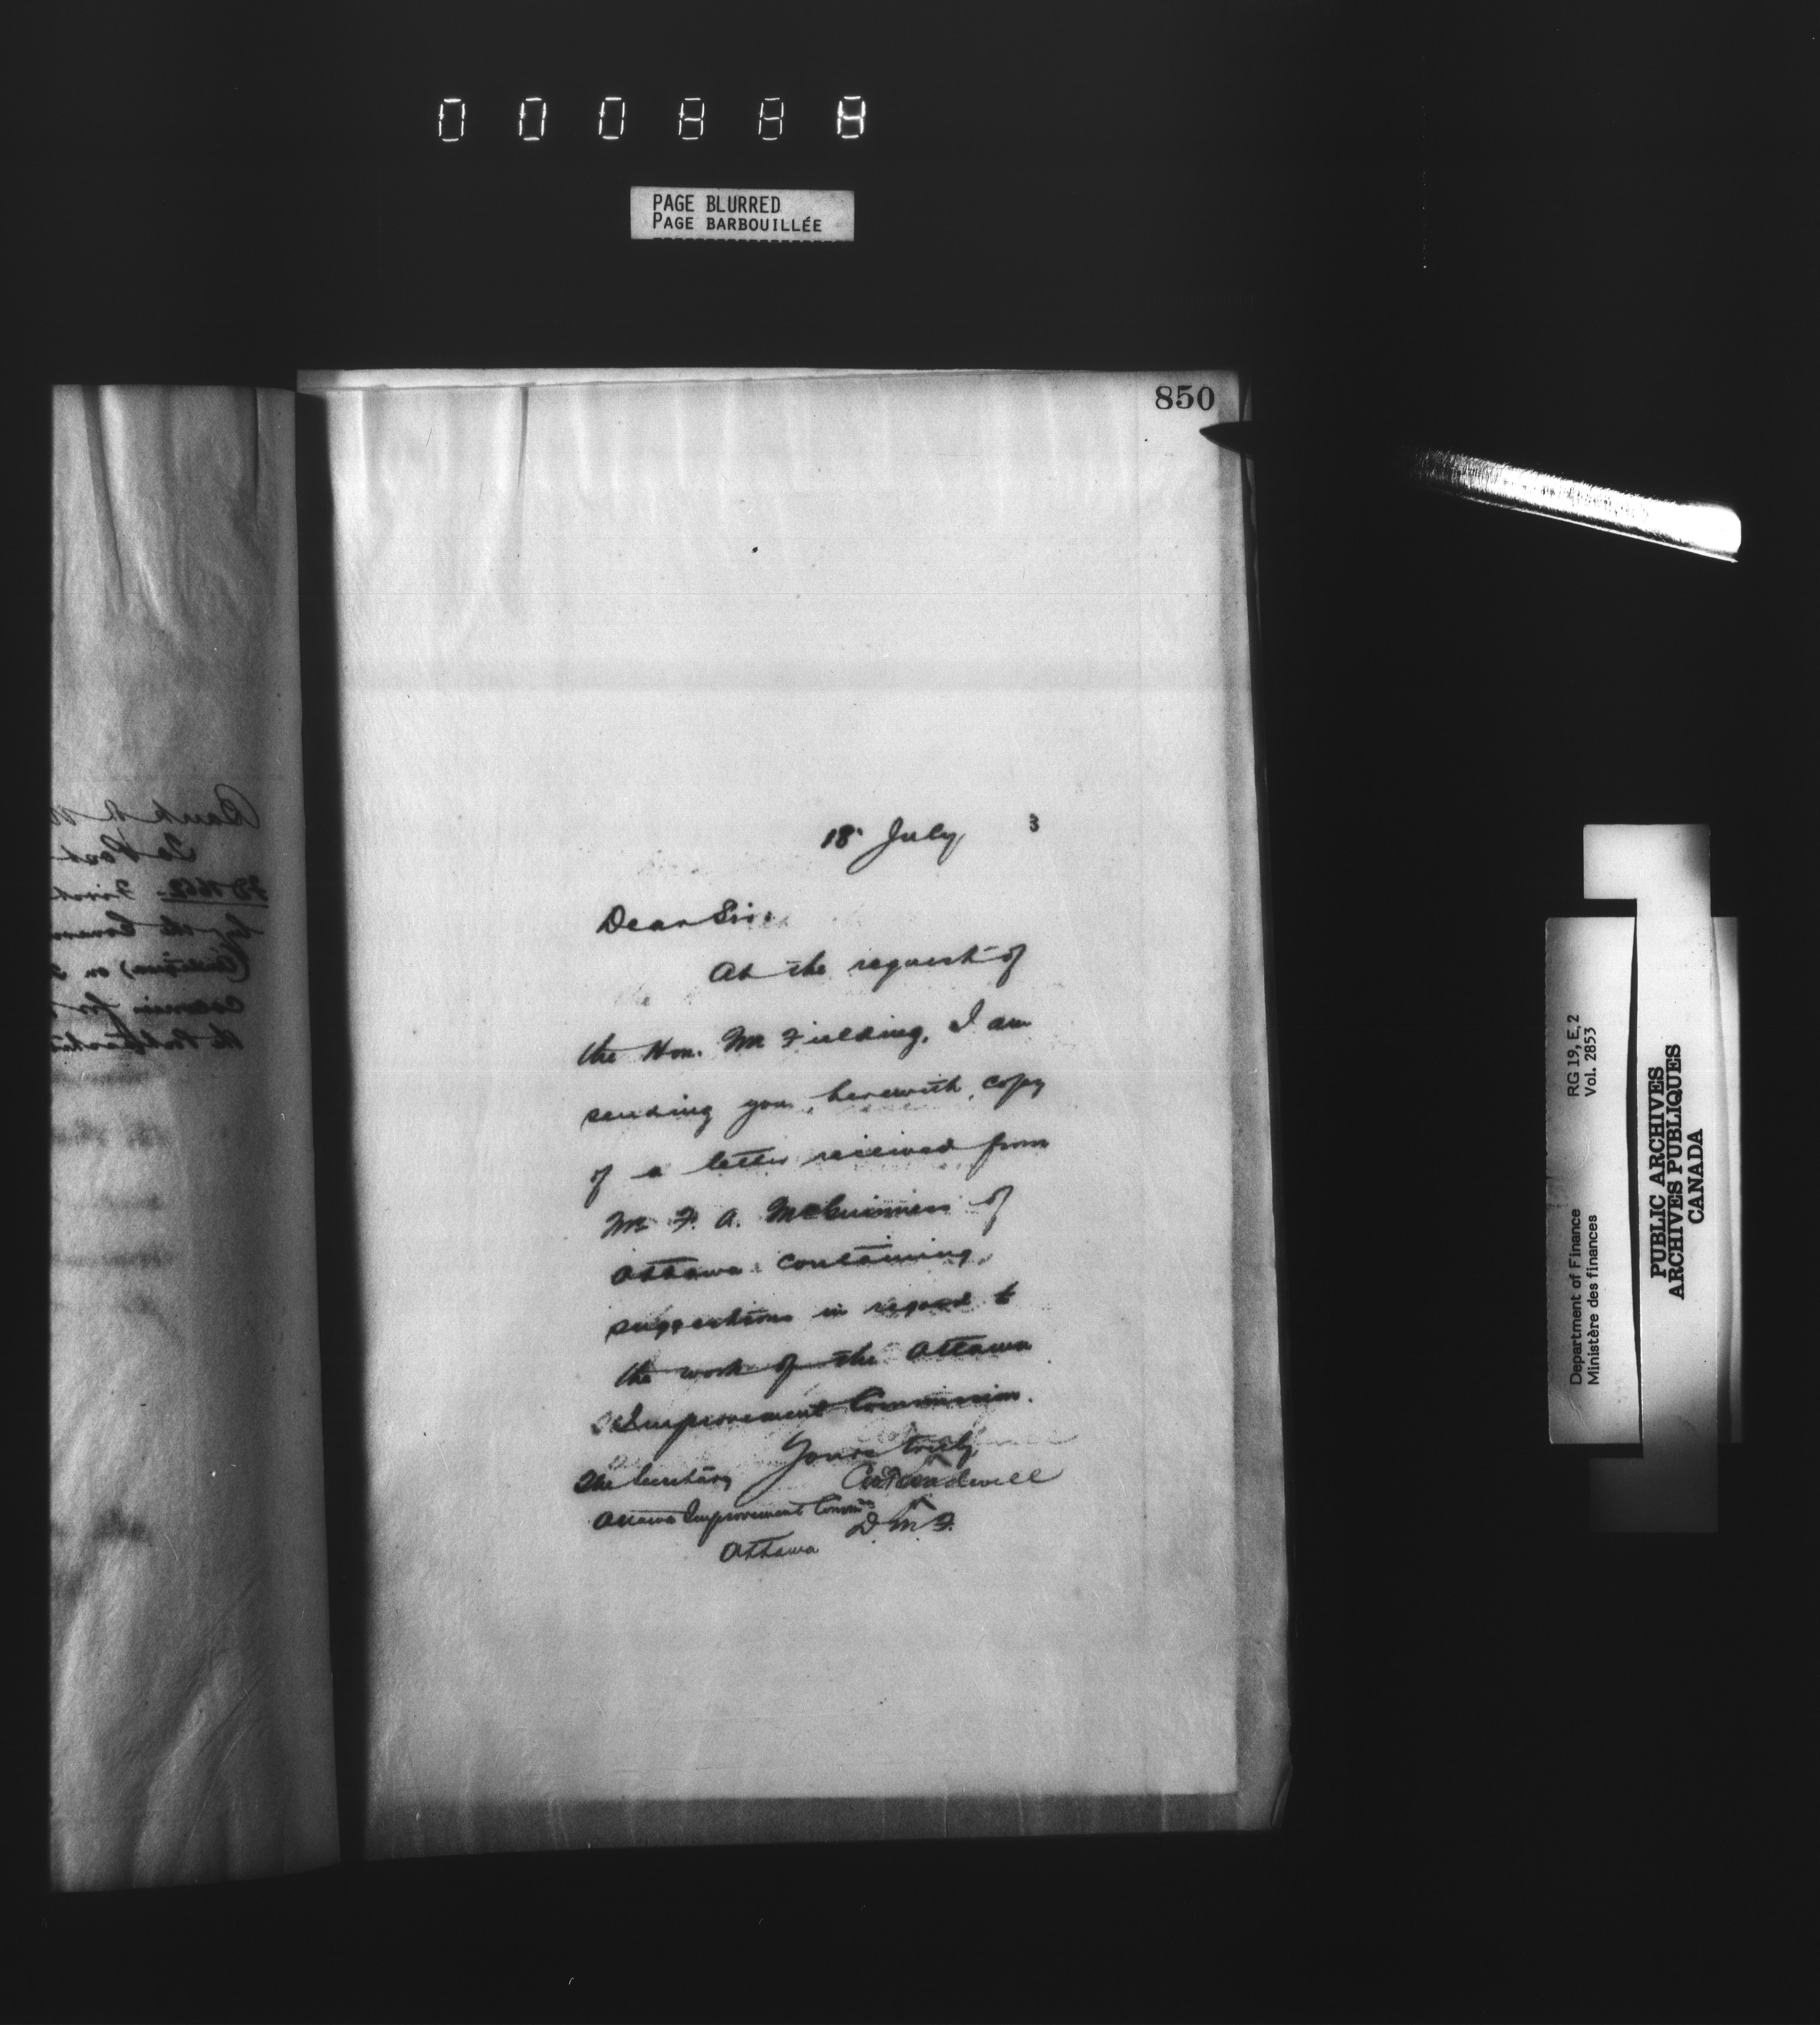 PAGE BLURRED
PAGE BARBOUILLÉE
850
18 July 3
Dear Sir.
At the request of
the Hon. Mr Fielding, I am
sending you, herewith, copy
of a letter received from
Mr F. A. McGuinness of
Ottawa containing
suggestions in regard to
the work of the Ottawa
Improvement Commission.
Yours truly
The Secretary
Ottawa Improvement Commn
D. M. F.
Ottawa
Department of Finance RG 19, E, 2
Ministère des finances Vol. 2853
PUBLIC ARCHIVES
ARCHIVES PUBLIQUES
CANADA